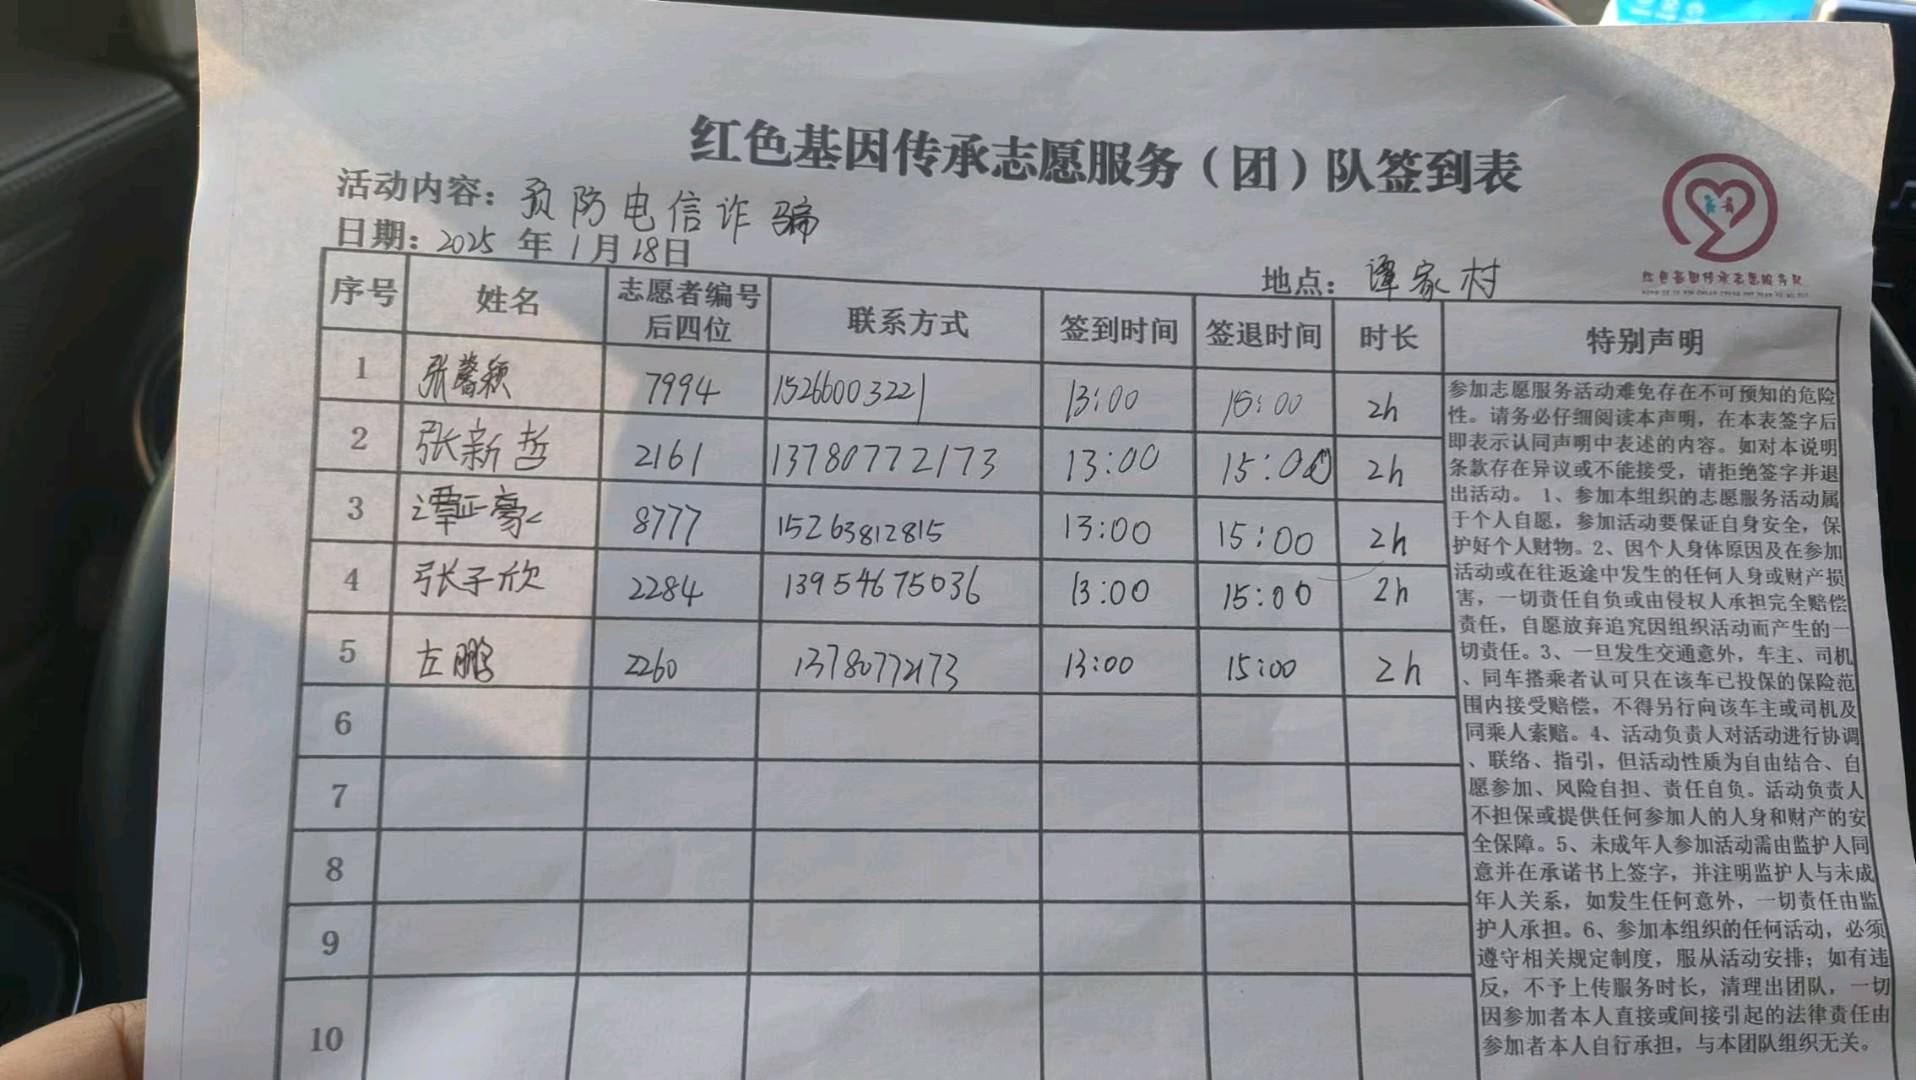 红色基因传承志愿服务（团）队签到表
活动内容：预防电信诈骗
日期：2025年1月18日
地点：谭家村
红色基因传承志愿服务队
序号 姓名 志愿者编号后四位 联系方式 签到时间 签退时间 时长 特别声明
1 张馨颖 7994 15266003221 13:00 15:00 2h
2 张新哲 2161 13780772173 13:00 15:00 2h
3 谭正豪 8777 15263812815 13:00 15:00 2h
4 张子欣 2284 13954675036 13:00 15:00 2h
5 左鹏 2260 13780772173 13:00 15:00 2h
6
7
8
9
10
参加志愿服务活动难免存在不可预知的危险
性。请务必仔细阅读本声明，在本表签字后
即表示认同声明中表述的内容。如对本说明
条款存在异议或不能接受，请拒绝签字并退
出活动。 1、参加本组织的志愿服务活动属
于个人自愿，参加活动要保证自身安全，保
护好个人财物。2、因个人身体原因及在参加
活动或在往返途中发生的任何人身或财产损
害，一切责任自负或由侵权人承担完全赔偿
责任，自愿放弃追究因组织活动而产生的一
切责任。3、一旦发生交通意外，车主、司机
、同车搭乘者认可只在该车已投保的保险范
围内接受赔偿，不得另行向该车主或司机及
同乘人索赔。4、活动负责人对活动进行协调
、联络、指引，但活动性质为自由结合、自
愿参加、风险自担、责任自负。活动负责人
不担保或提供任何参加人的人身和财产的安
全保障。5、未成年人参加活动需由监护人同
意并在承诺书上签字，并注明监护人与未成
年人关系，如发生任何意外，一切责任由监
护人承担。6、参加本组织的任何活动，必须
遵守相关规定制度，服从活动安排；如有违
反，不予上传服务时长，清理出团队，一切
因参加者本人直接或间接引起的法律责任由
参加者本人自行承担，与本团队组织无关。